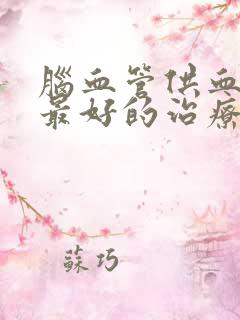 腦血管供血
最好的治療
蘇巧